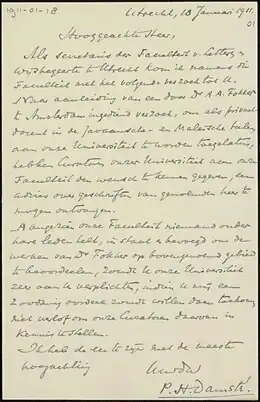 1911-01-18
Utrecht, 18 Januari 1911.
Hooggeachte Heer,
Als secretaris der Faculteit v. Letteren &
wijsbegeerte te Utrecht kom ik namens die
Faculteit met het volgende verzoek tot U.
Naar aanleiding van een door Dr. A.A. Fokker
te Amsterdam ingediend verzoek, om als privaat-
docent in de Javaansche- en Maleische talen
aan onze Universiteit te worden toegelaten,
hebben Curatoren onzer Universiteit aan onze
Faculteit den wensch te kennen gegeven, een
advies over geschriften van genoemden heer te
mogen ontvangen.
Aangezien onze Faculteit niemand onder
hare leden telt, in staat & bevoegd om de
werken van Dr Fokker op bovengenoemd gebied
te beoordeelen, zoudt U onze Universiteit
zeer aan U verplichten, indien U mij een
zoodanig oordeel zoudt willen doen toekomen,
met verlof om onze Curatoren daarvan in
kennis te stellen.
Ik heb de eer te zijn met de meeste
hoogachting
Uw dw.
P. H. Damsté.